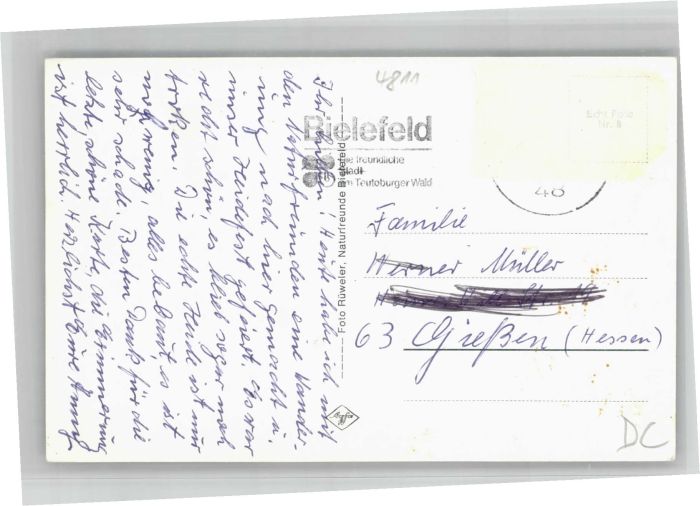 Ihr Lieben! Heute habe ich mit
den Naturfreunden eine Wander-
ung nach hier gemacht u.
unser Heidefest gefeiert. Es war
recht schön, es blieb sogar noch
trocken. Die echte Heide ist nur
noch wenig, alles bebaut, es ist
sehr schade. Besten Dank für die
letzte schöne Karte, die Erinnerung
ist herrlich. Herzlichst Eure
4811
Bielefeld
die freundliche
Stadt
am Teutoburger Wald
48
Echt Foto
Nr. 8
Foto Rüweler, Naturfreunde Bielefeld
Agfa
Familie
Werner Müller
63 Gießen (Hessen)
DC